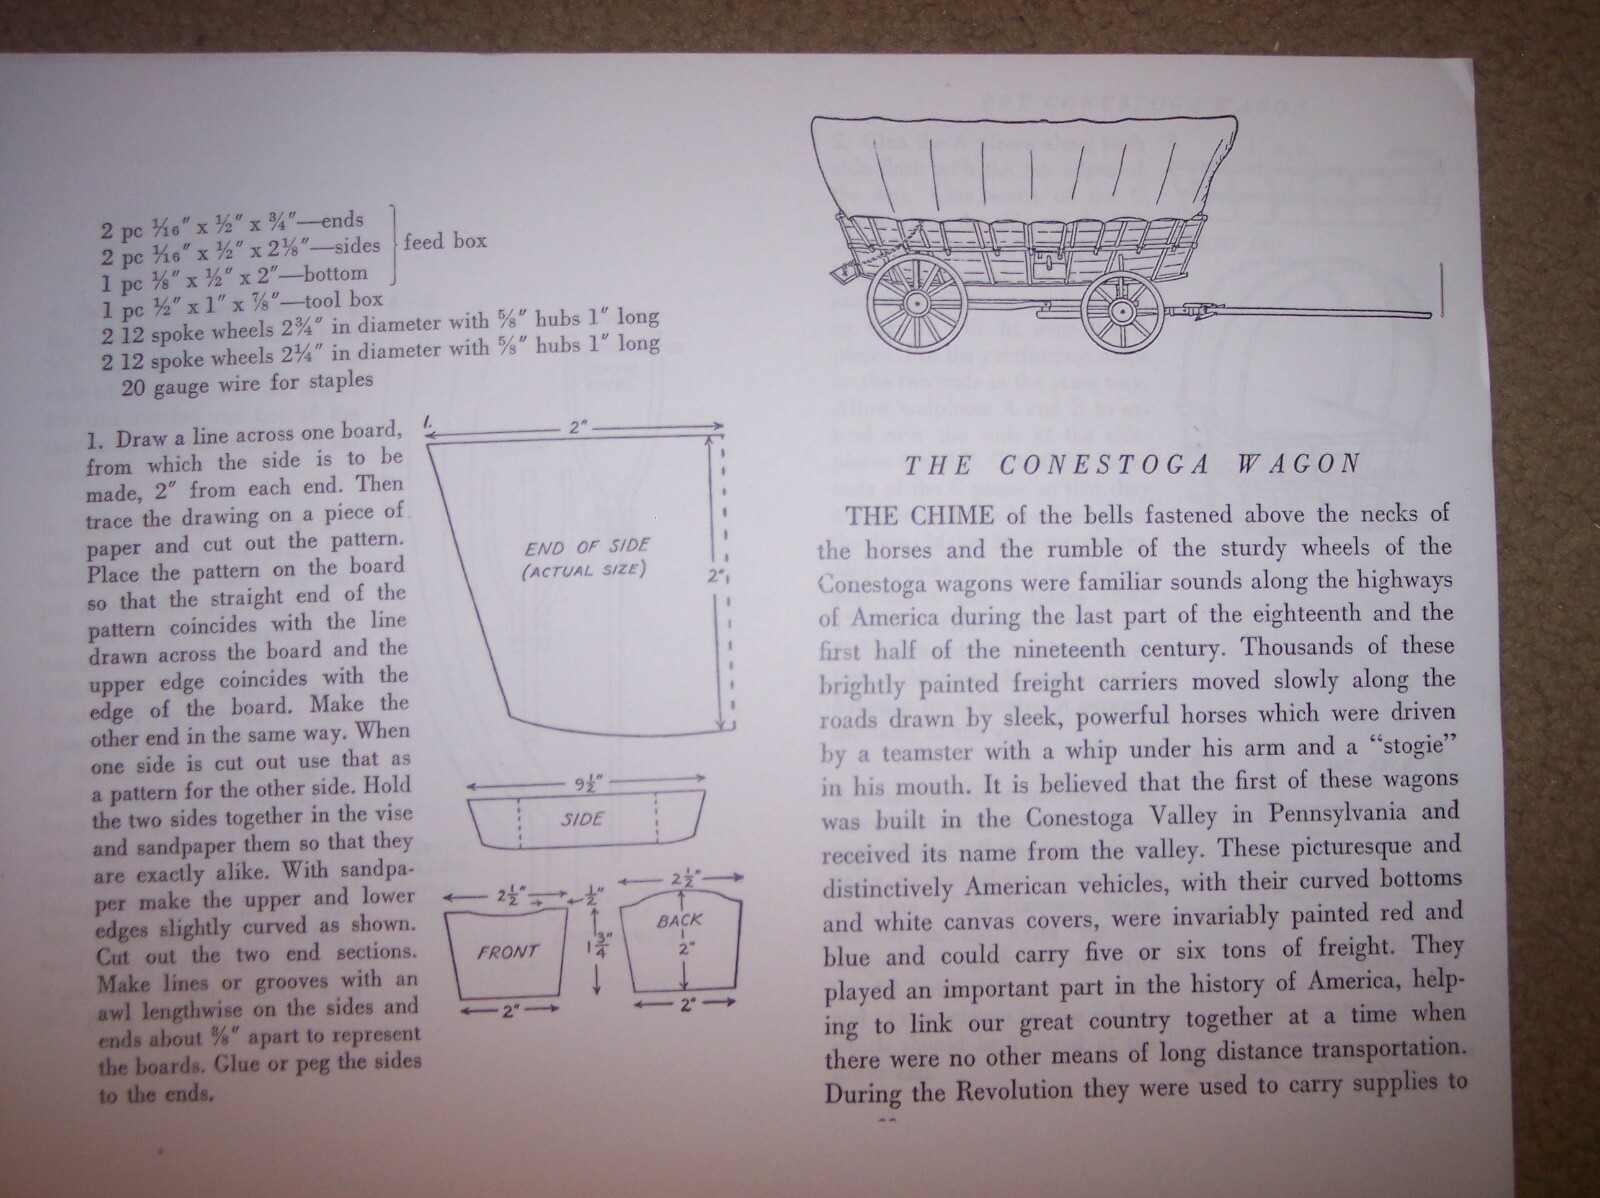 2 pc 1/16" x 1/2" x 3/4"—ends
2 pc 1/16" x 1/2" x 2 1/8"—sides
1 pc 1/8" x 1/2" x 2"—bottom
feed box
1 pc 1/2" x 1" x 7/8"—tool box
2 12 spoke wheels 2 3/4" in diameter with 5/8" hubs 1" long
2 12 spoke wheels 2 1/4" in diameter with 5/8" hubs 1" long
20 gauge wire for staples
1. Draw a line across one board,
from which the side is to be
made, 2" from each end. Then
trace the drawing on a piece of
paper and cut out the pattern.
Place the pattern on the board
so that the straight end of the
pattern coincides with the line
drawn across the board and the
upper edge coincides with the
edge of the board. Make the
other end in the same way. When
one side is cut out use that as
a pattern for the other side. Hold
the two sides together in the vise
and sandpaper them so that they
are exactly alike. With sandpa-
per make the upper and lower
edges slightly curved as shown.
Cut out the two end sections.
Make lines or grooves with an
awl lengthwise on the sides and
ends about 3/8" apart to represent
the boards. Glue or peg the sides
to the ends.
1.
2"
END OF SIDE
(ACTUAL SIZE)
2"
9 1/2"
SIDE
2 1/2"
1/2"
FRONT
1 3/4"
2"
2 1/2"
BACK
2"
2"
THE CONESTOGA WAGON
THE CHIME of the bells fastened above the necks of
the horses and the rumble of the sturdy wheels of the
Conestoga wagons were familiar sounds along the highways
of America during the last part of the eighteenth and the
first half of the nineteenth century. Thousands of these
brightly painted freight carriers moved slowly along the
roads drawn by sleek, powerful horses which were driven
by a teamster with a whip under his arm and a "stogie"
in his mouth. It is believed that the first of these wagons
was built in the Conestoga Valley in Pennsylvania and
received its name from the valley. These picturesque and
distinctively American vehicles, with their curved bottoms
and white canvas covers, were invariably painted red and
blue and could carry five or six tons of freight. They
played an important part in the history of America, help-
ing to link our great country together at a time when
there were no other means of long distance transportation.
During the Revolution they were used to carry supplies to